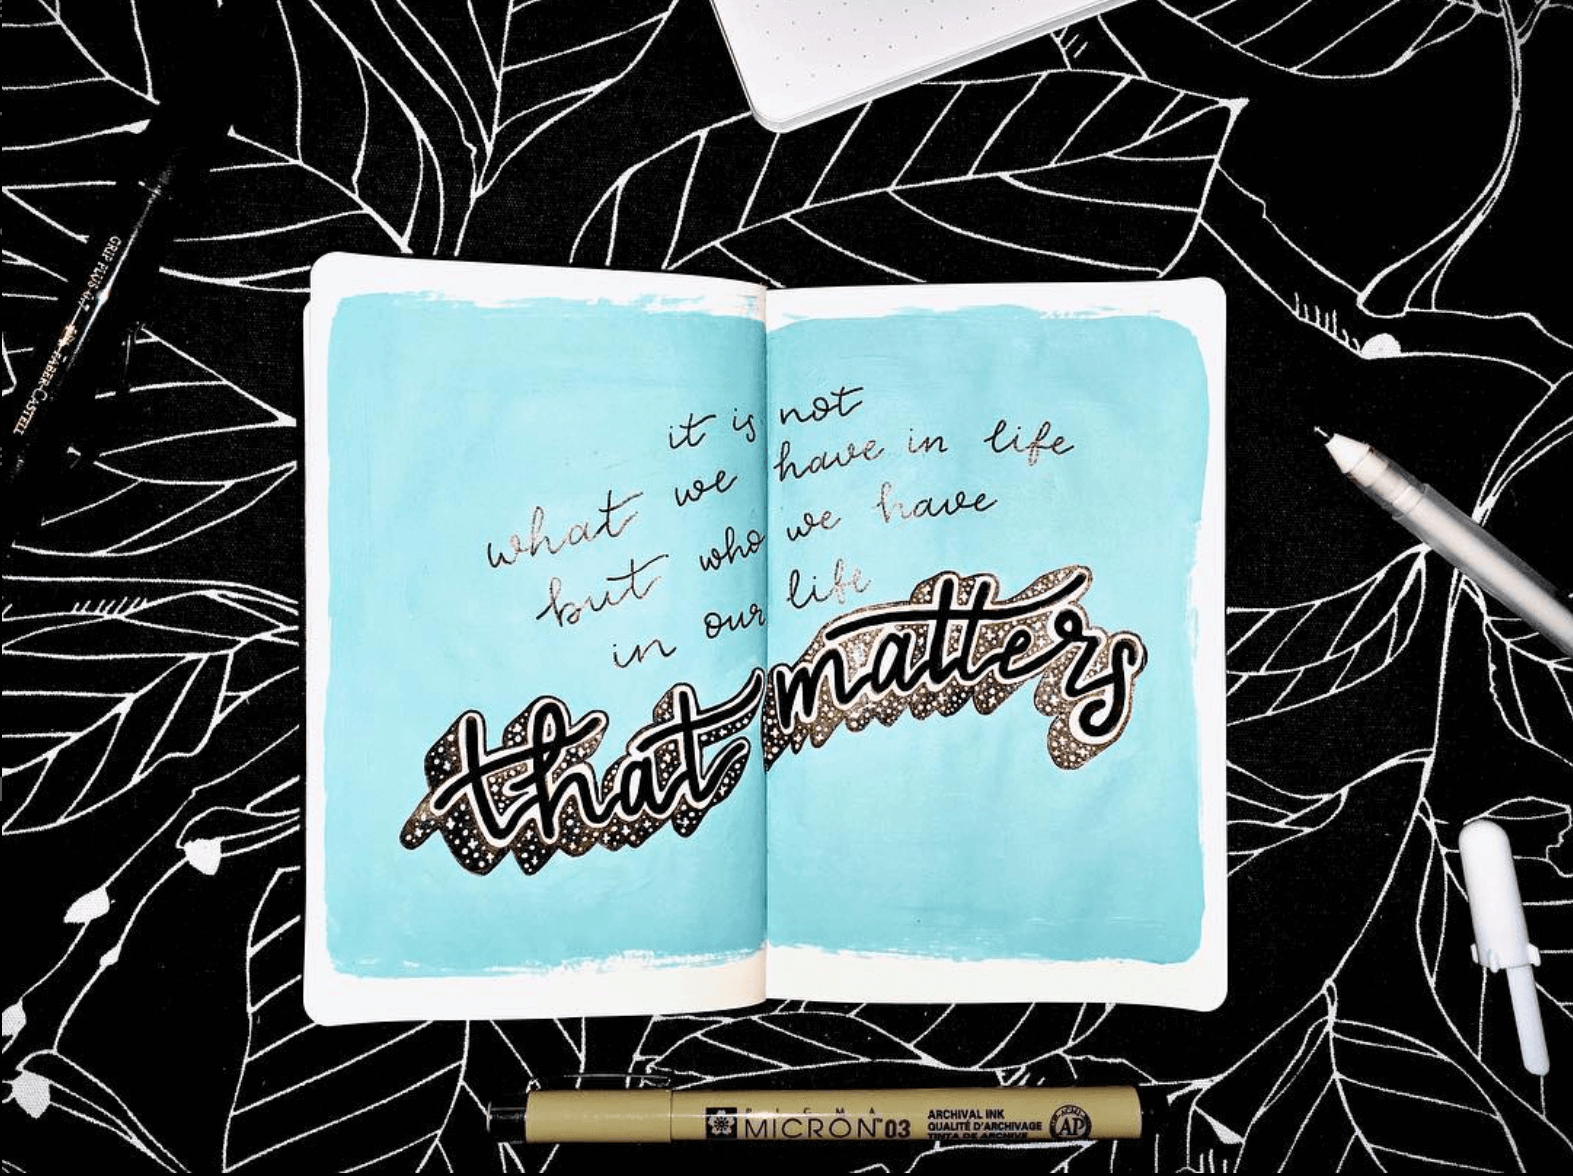 it is not
what we have in life
but who we have
in our life
that matters
GRIP PLUS
FABER-CASTELL
PIGMA
MICRON™ 03
ARCHIVAL INK
QUALITÉ D'ARCHIVAGE
TINTA DE ARCHIVE
ACMI
AP